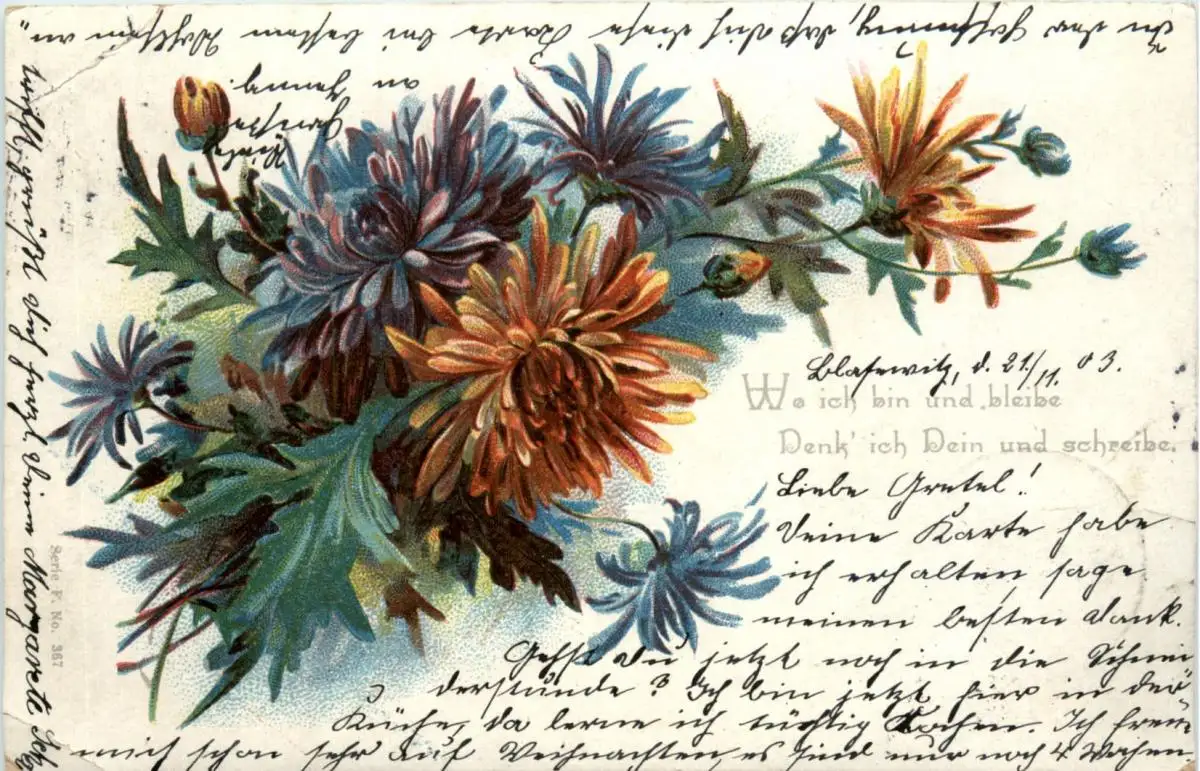 Blasewitz, d. 21/11. 03.
Wo ich bin und bleibe
Denk' ich Dein und schreibe.
Liebe Gretel!
Deine Karte habe
ich erhalten sage
meinen besten Dank.
Gehst Du jetzt noch in die Schnei
derstunde? Ich bin jetzt hier in der
Küche, da lerne ich tüchtig Kochen. Ich freue
mich schon sehr auf Weihnachten, es sind nur noch 4 Wochen.
In der Hoffnung, daß dich diese Karte bei bestem Wohlsein an
trifft, grüßt dich herzl. Deine Margarete
an
Serie F. No. 367